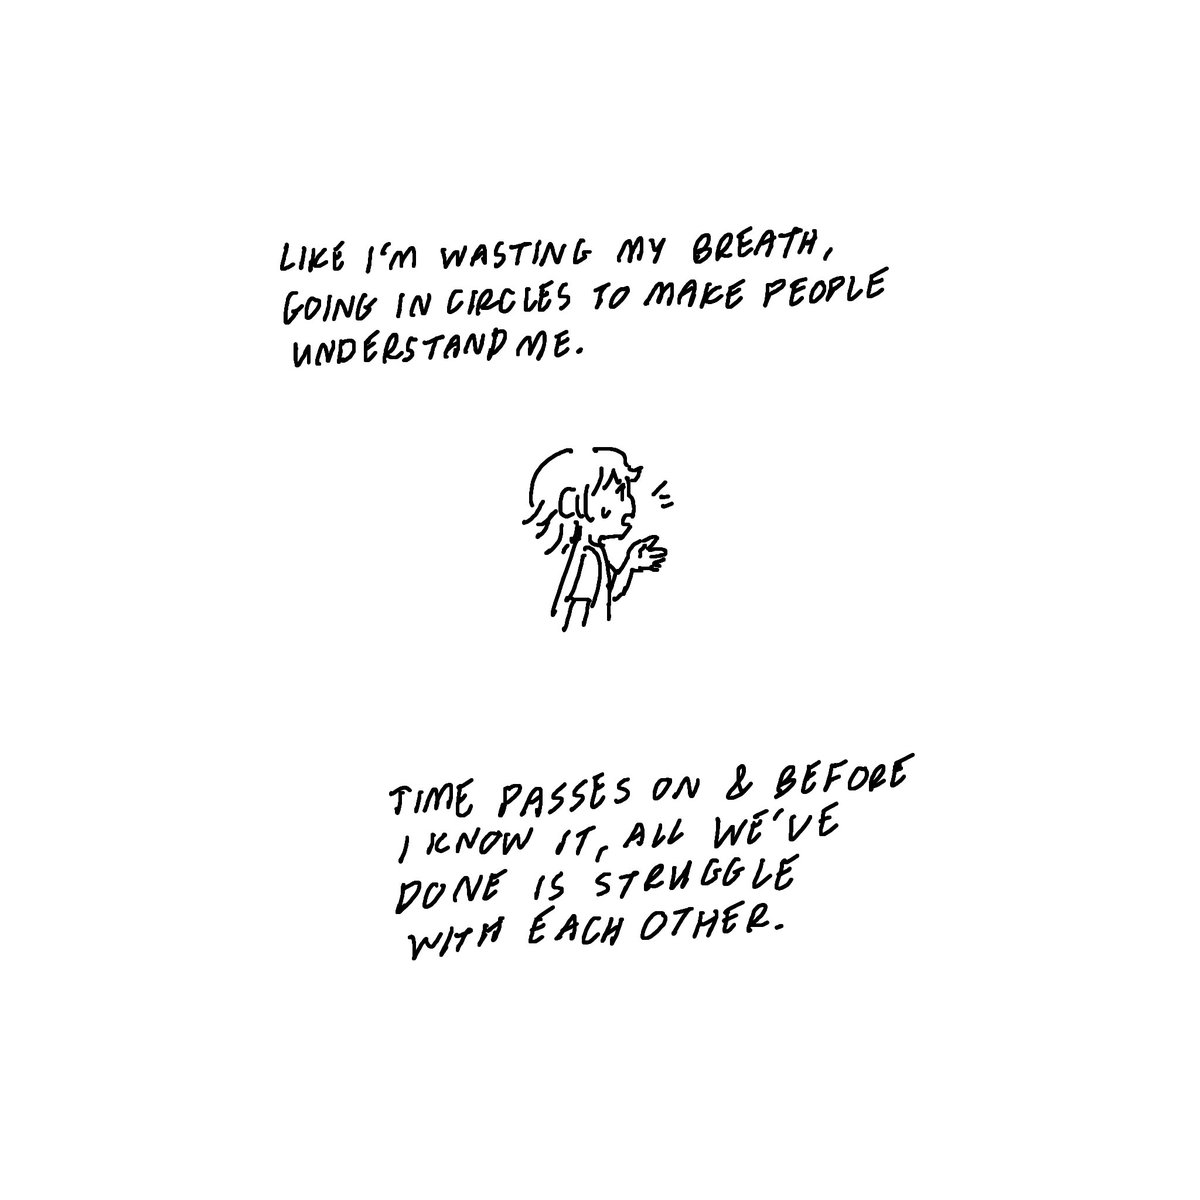 LIKE I'M WASTING MY BREATH,
GOING IN CIRCLES TO MAKE PEOPLE
UNDERSTAND ME.
TIME PASSES ON & BEFORE
I KNOW IT, ALL WE'VE
DONE IS STRUGGLE
WITH EACH OTHER.